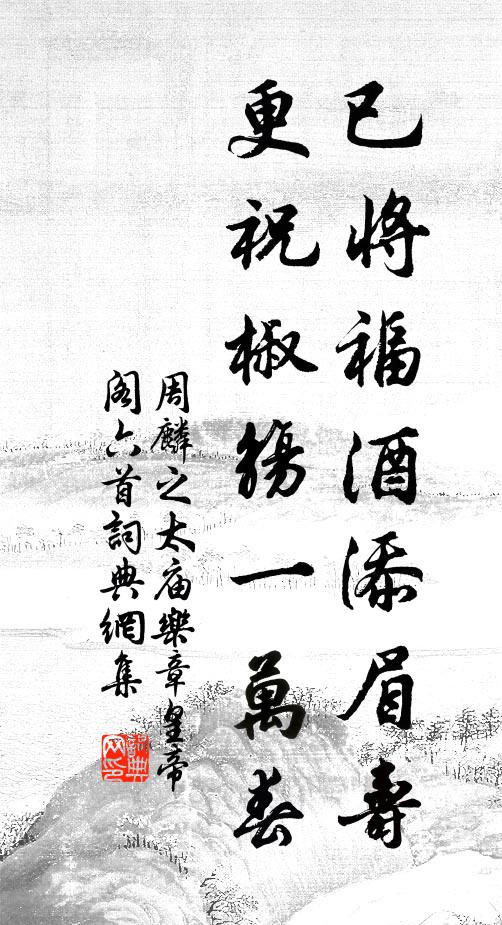 已將福酒添眉壽
更祝椒觴一萬春
周麟之太廟樂章皇帝
閣六首詞典網集
詞典网印